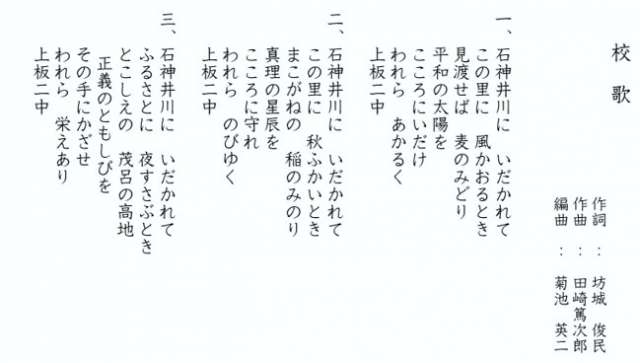 校　歌
作詞　：　坊城　俊民
作曲　：　田崎篤次郎
編曲　：　菊池　英二
一、石神井川に　いだかれて
この里に　風かおるとき
見渡せば　麦のみどり
平和の太陽を
こころにいだけ
われら　あかるく
上板二中
二、石神井川に　いだかれて
この里に　秋ふかいとき
まこがねの　稲のみのり
真理の星辰を
こころに守れ
われら　のびゆく
上板二中
三、石神井川に　いだかれて
ふるさとに　夜すさぶとき
とこしえの　茂呂の高地
正義のともしびを
その手にかざせ
われら　栄えあり
上板二中